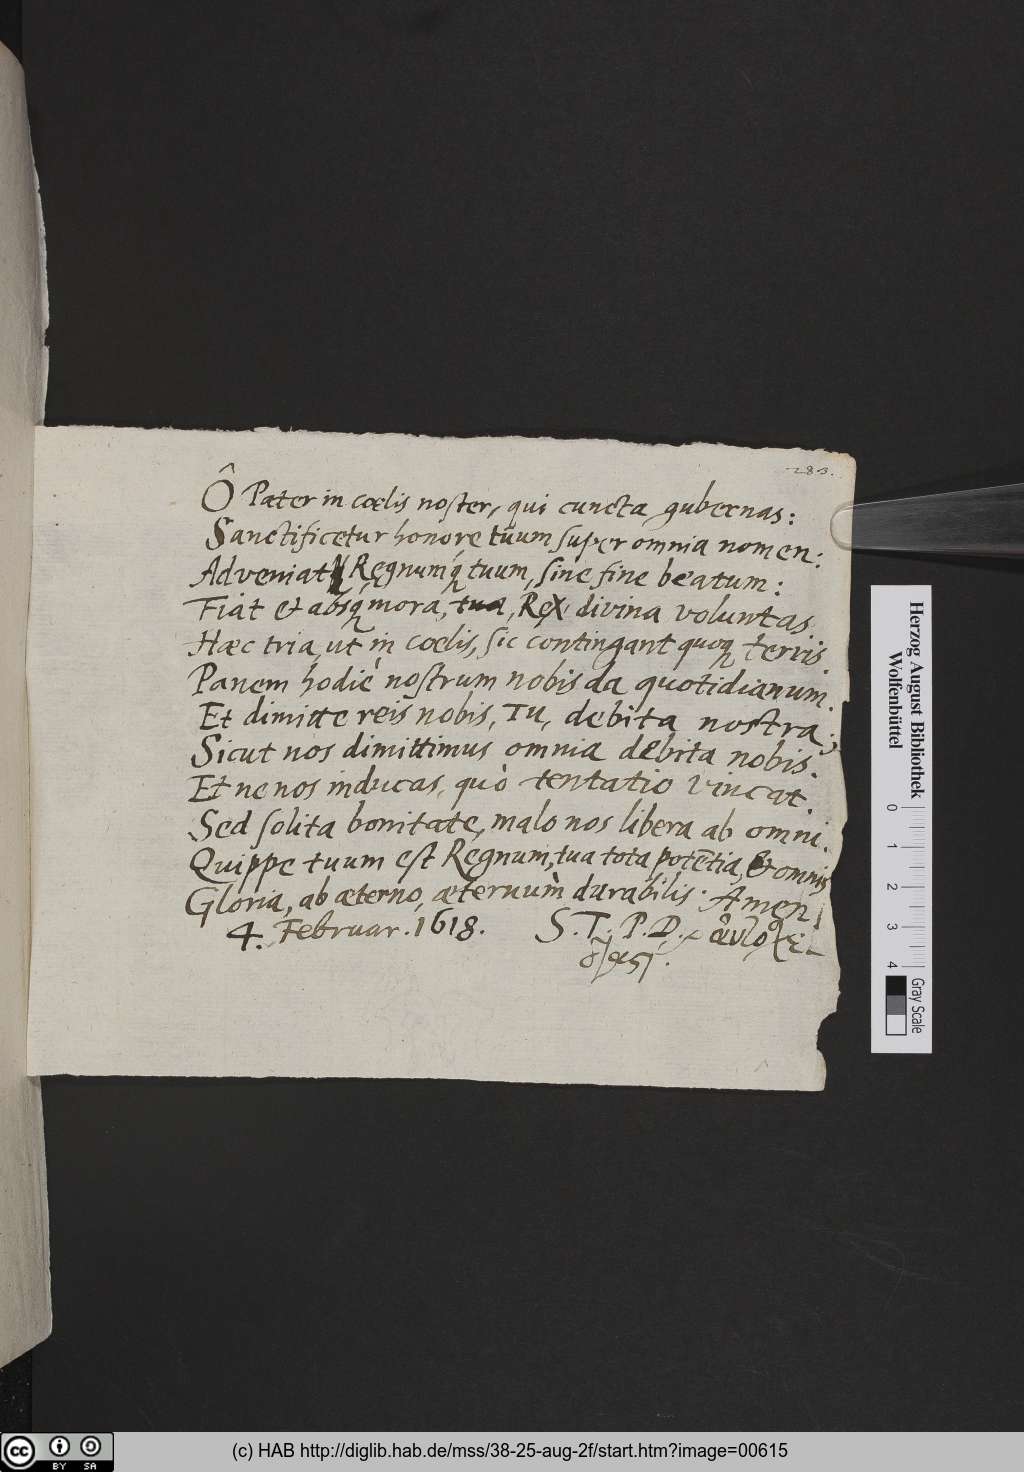 283.
Ô Pater in coelis noster, qui cuncta gubernas:
Sanctificetur honore tuum super omnia nomen:
Adveniat Regnumq́ tuum, sine fine beatum:
Fiat et absq́ mora, tua, Rex divina voluntas
Haec tria, ut in coelis, sic contingant quoq terris.
Panem hodiè nostrum nobis da quotidianum.
Et dimitte reis nobis, Tu, debita nostra;
Sicut nos dimittimus omnia debita nobis.
Et ne nos inducas, quò tentatio vincat.
Sed solita bonitate, malo nos libera ab omni.
Quippe tuum est Regnum, tua tota potētia, & omnis
Gloria, ab aeterno, aeternum durabilis. Amen
4. Februar. 1618. S. T. P. D.
Herzog August Bibliothek
Wolfenbüttel
0 1 2 3 4
Gray Scale
cc BY SA
(c) HAB http://diglib.hab.de/mss/38-25-aug-2f/start.htm?image=00615